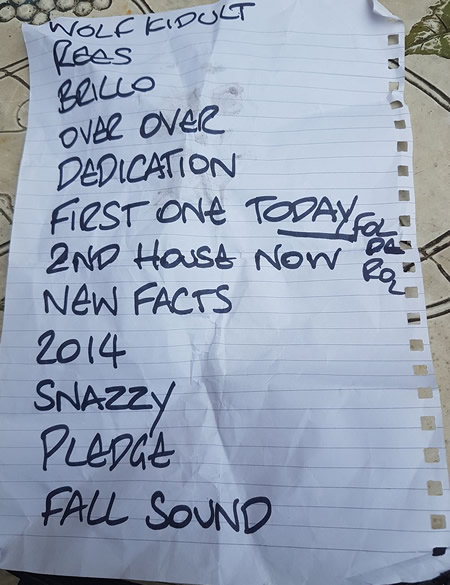 WOLF KIDULT
REES
BRILLO
OVER OVER
DEDICATION
FIRST ONE TODAY
FOL
DE
ROL
2ND HOUSE NOW
NEW FACTS
2014
SNAZZY
PLEDGE
FALL SOUND